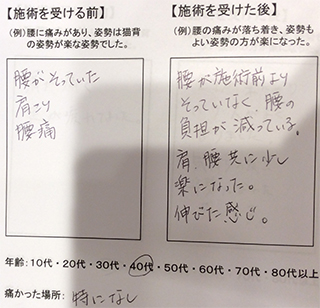 【施術を受ける前】
(例)腰に痛みがあり、姿勢は猫背
の姿勢が楽な姿勢でした。
腰がそっていた
肩こり
腰痛
【施術を受けた後】
(例)腰の痛みが落ち着き、姿勢も
よい姿勢の方が楽になった。
腰が施術前より
そっていなく、腰の
負担が減っている。
肩、腰共に少し
楽になった。
伸びた感じ。
年齢:10代・20代・30代・40代・50代・60代・70代・80代以上
痛かった場所: 特になし